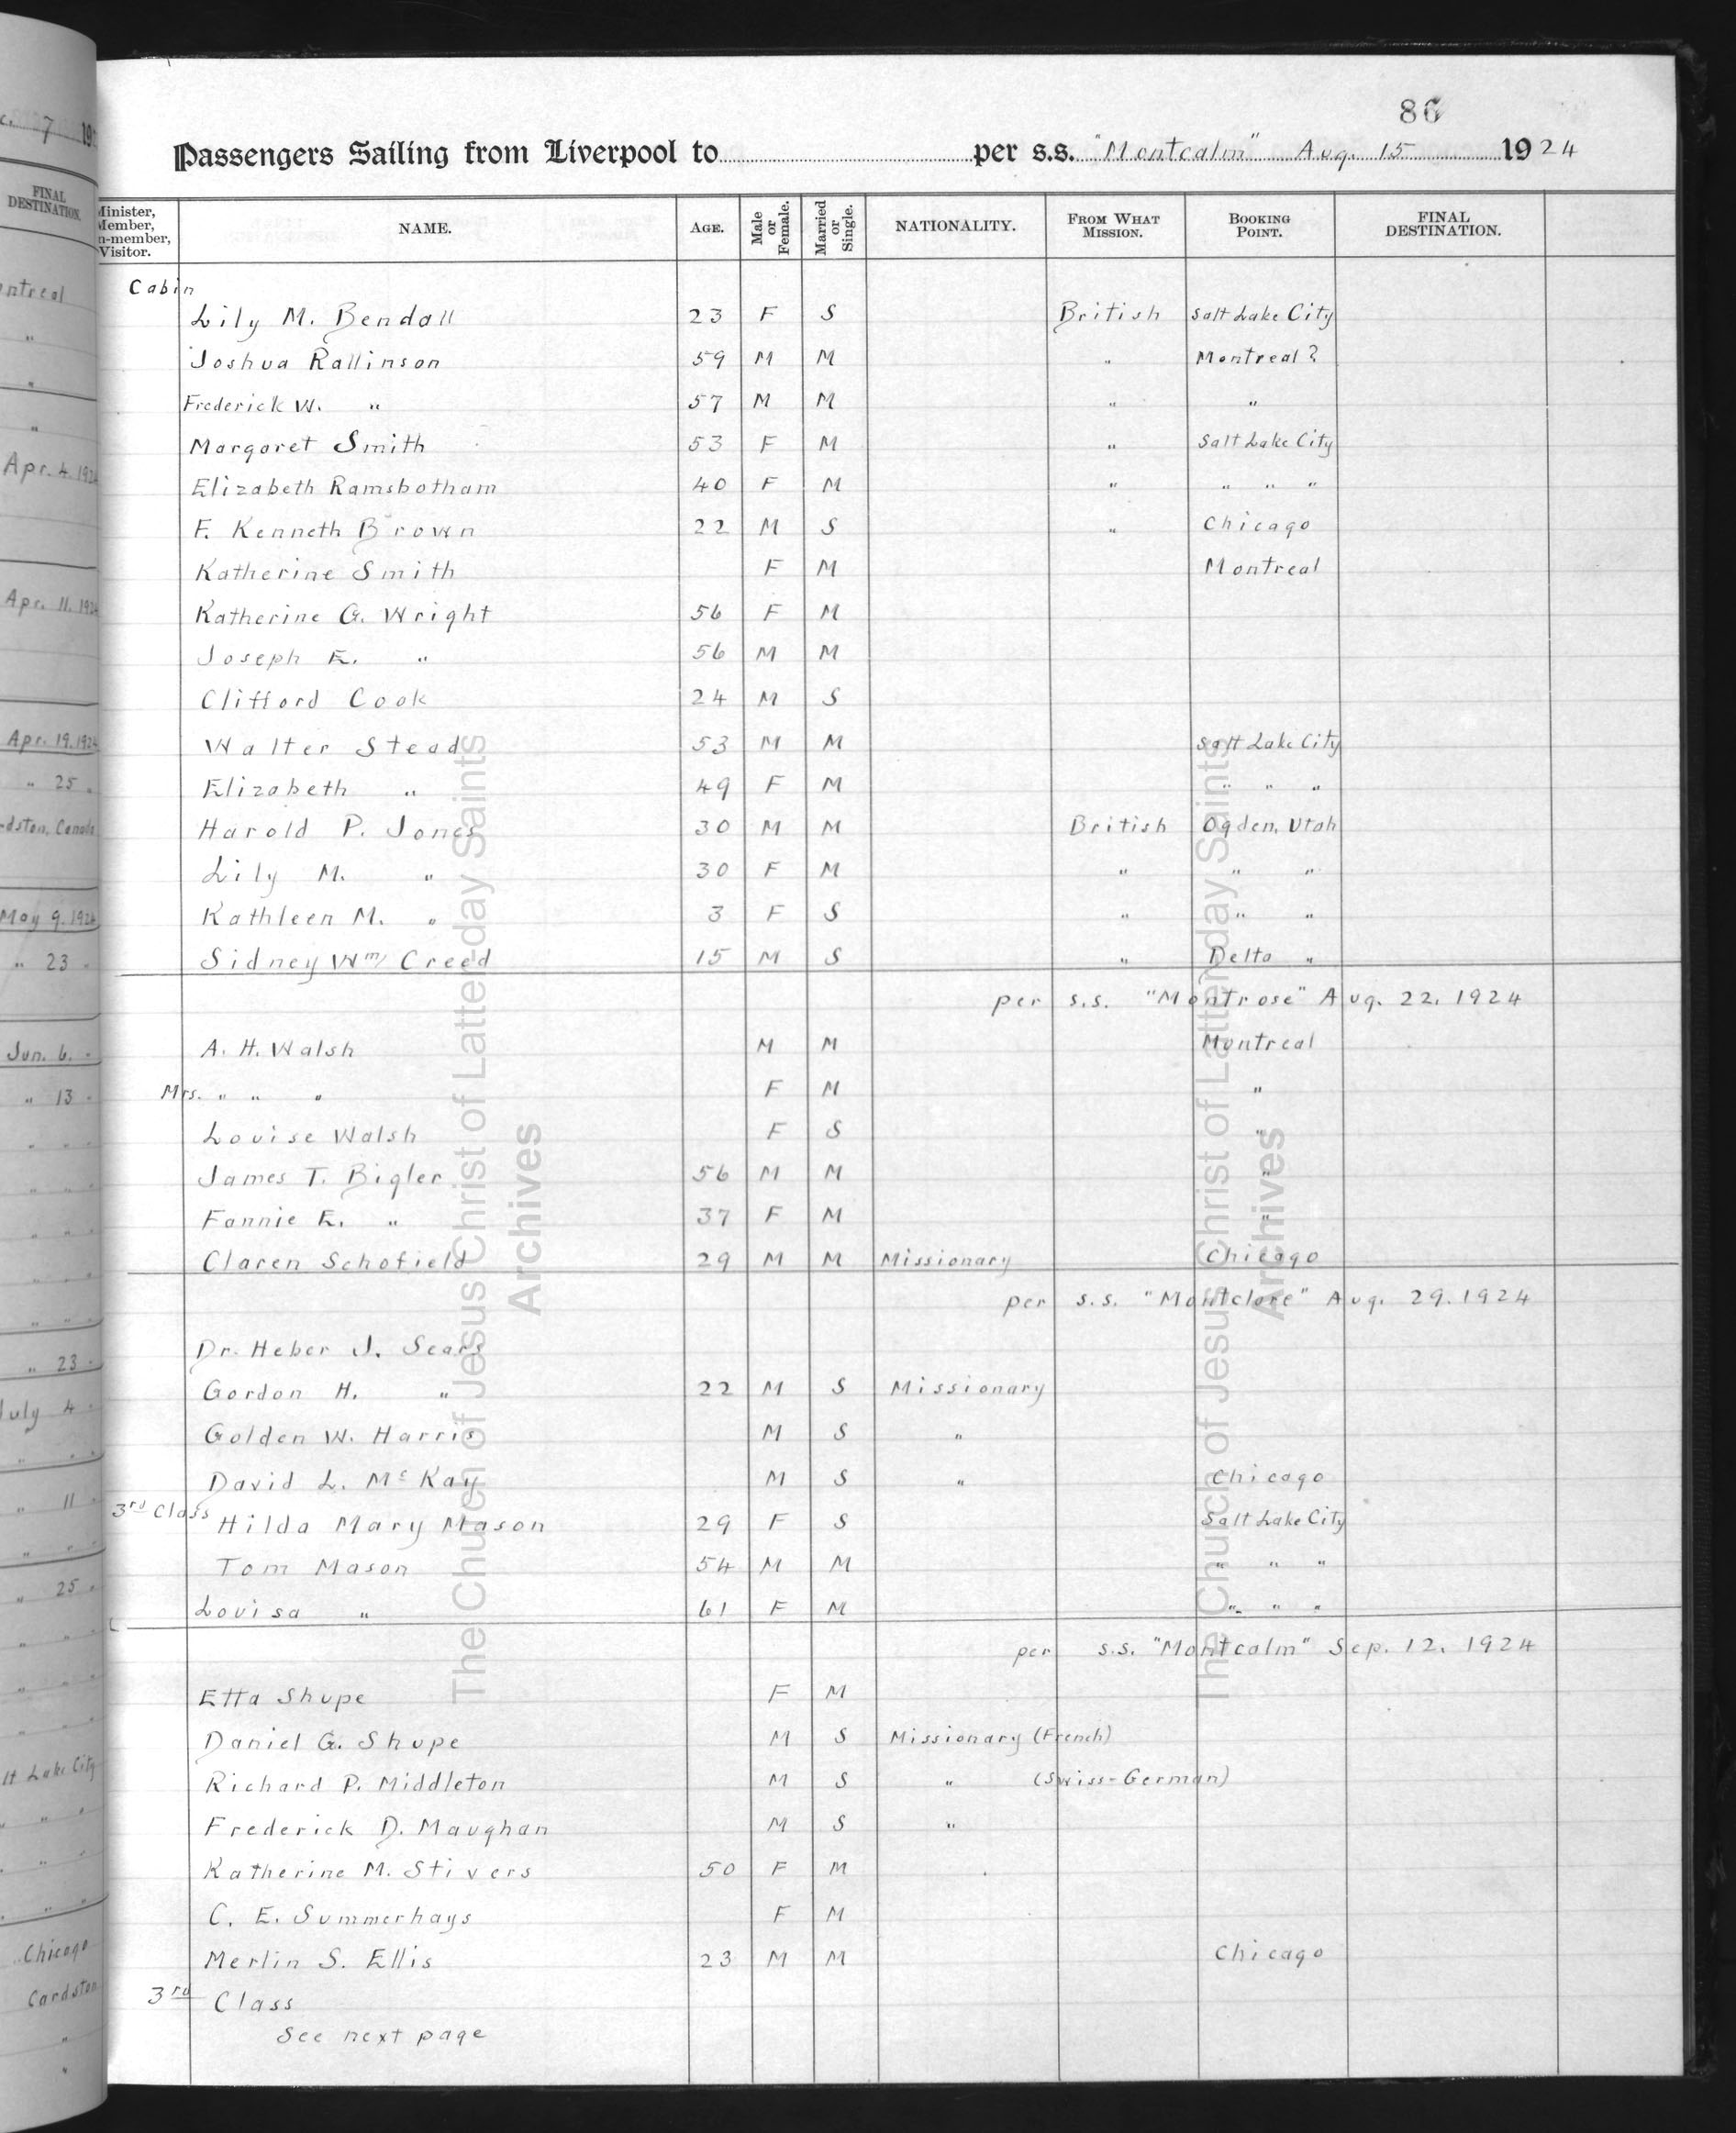 86
Passengers Sailing from Liverpool to per s.s. "Montcalm" Aug. 15 1924
Minister, Member, n-member, Visitor. NAME. AGE. Male or Female. Married or Single. NATIONALITY. FROM WHAT MISSION. BOOKING POINT. FINAL DESTINATION.
Cabin
Lily M. Bendall 23 F S British Salt Lake City
Joshua Rallinson 59 M M " Montreal ?
Frederick W. " 57 M M " "
Margaret Smith 53 F M " Salt Lake City
Elizabeth Ramsbotham 40 F M " " " "
F. Kenneth Brown 22 M S " Chicago
Katherine Smith F M Montreal
Katherine G. Wright 56 F M
Joseph E. " 56 M M
Clifford Cook 24 M S
Walter Stead 53 M M Salt Lake City
Elizabeth " 49 F M " " "
Harold P. Jones 30 M M British Ogden, Utah
Lily M. " 30 F M " " "
Kathleen M. " 3 F S " " "
Sidney Wm Creed 15 M S " Delta "
per s.s. "Montrose" Aug. 22. 1924
A. H. Walsh M M Montreal
Mrs. " " " F M "
Louise Walsh F S "
James T. Bigler 56 M M "
Fannie E. " 37 F M "
Claren Schofield 29 M M Missionary Chicago
per s.s. "Montclare" Aug. 29. 1924
Dr. Heber J. Sears
Gordon H. " 22 M S Missionary
Golden W. Harris M S "
David L. McKay M S " Chicago
3rd Class
Hilda Mary Mason 29 F S Salt Lake City
Tom Mason 54 M M " " "
Louisa " 61 F M " " "
per s.s. "Montcalm" Sep. 12. 1924
Etta Shupe F M
Daniel G. Shupe M S Missionary (French)
Richard P. Middleton M S " (Swiss-German)
Frederick D. Maughan M S "
Katherine M. Stivers 50 F M
C. E. Summerhays F M
Merlin S. Ellis 23 M M Chicago
3rd Class
See next page
The Church of Jesus Christ of Latter-day Saints
Archives
The Church of Jesus Christ of Latter-day Saints
Archives
7 19
FINAL DESTINATION.
Apr. 4. 1924
Apr. 11. 1924
Apr. 19. 1924
" 25 "
May 9. 1924
" 23 "
Jun. 6. "
" 13 "
" 23 "
July 4 "
" 11 "
" 25 "
Lake City
Chicago
Cardston